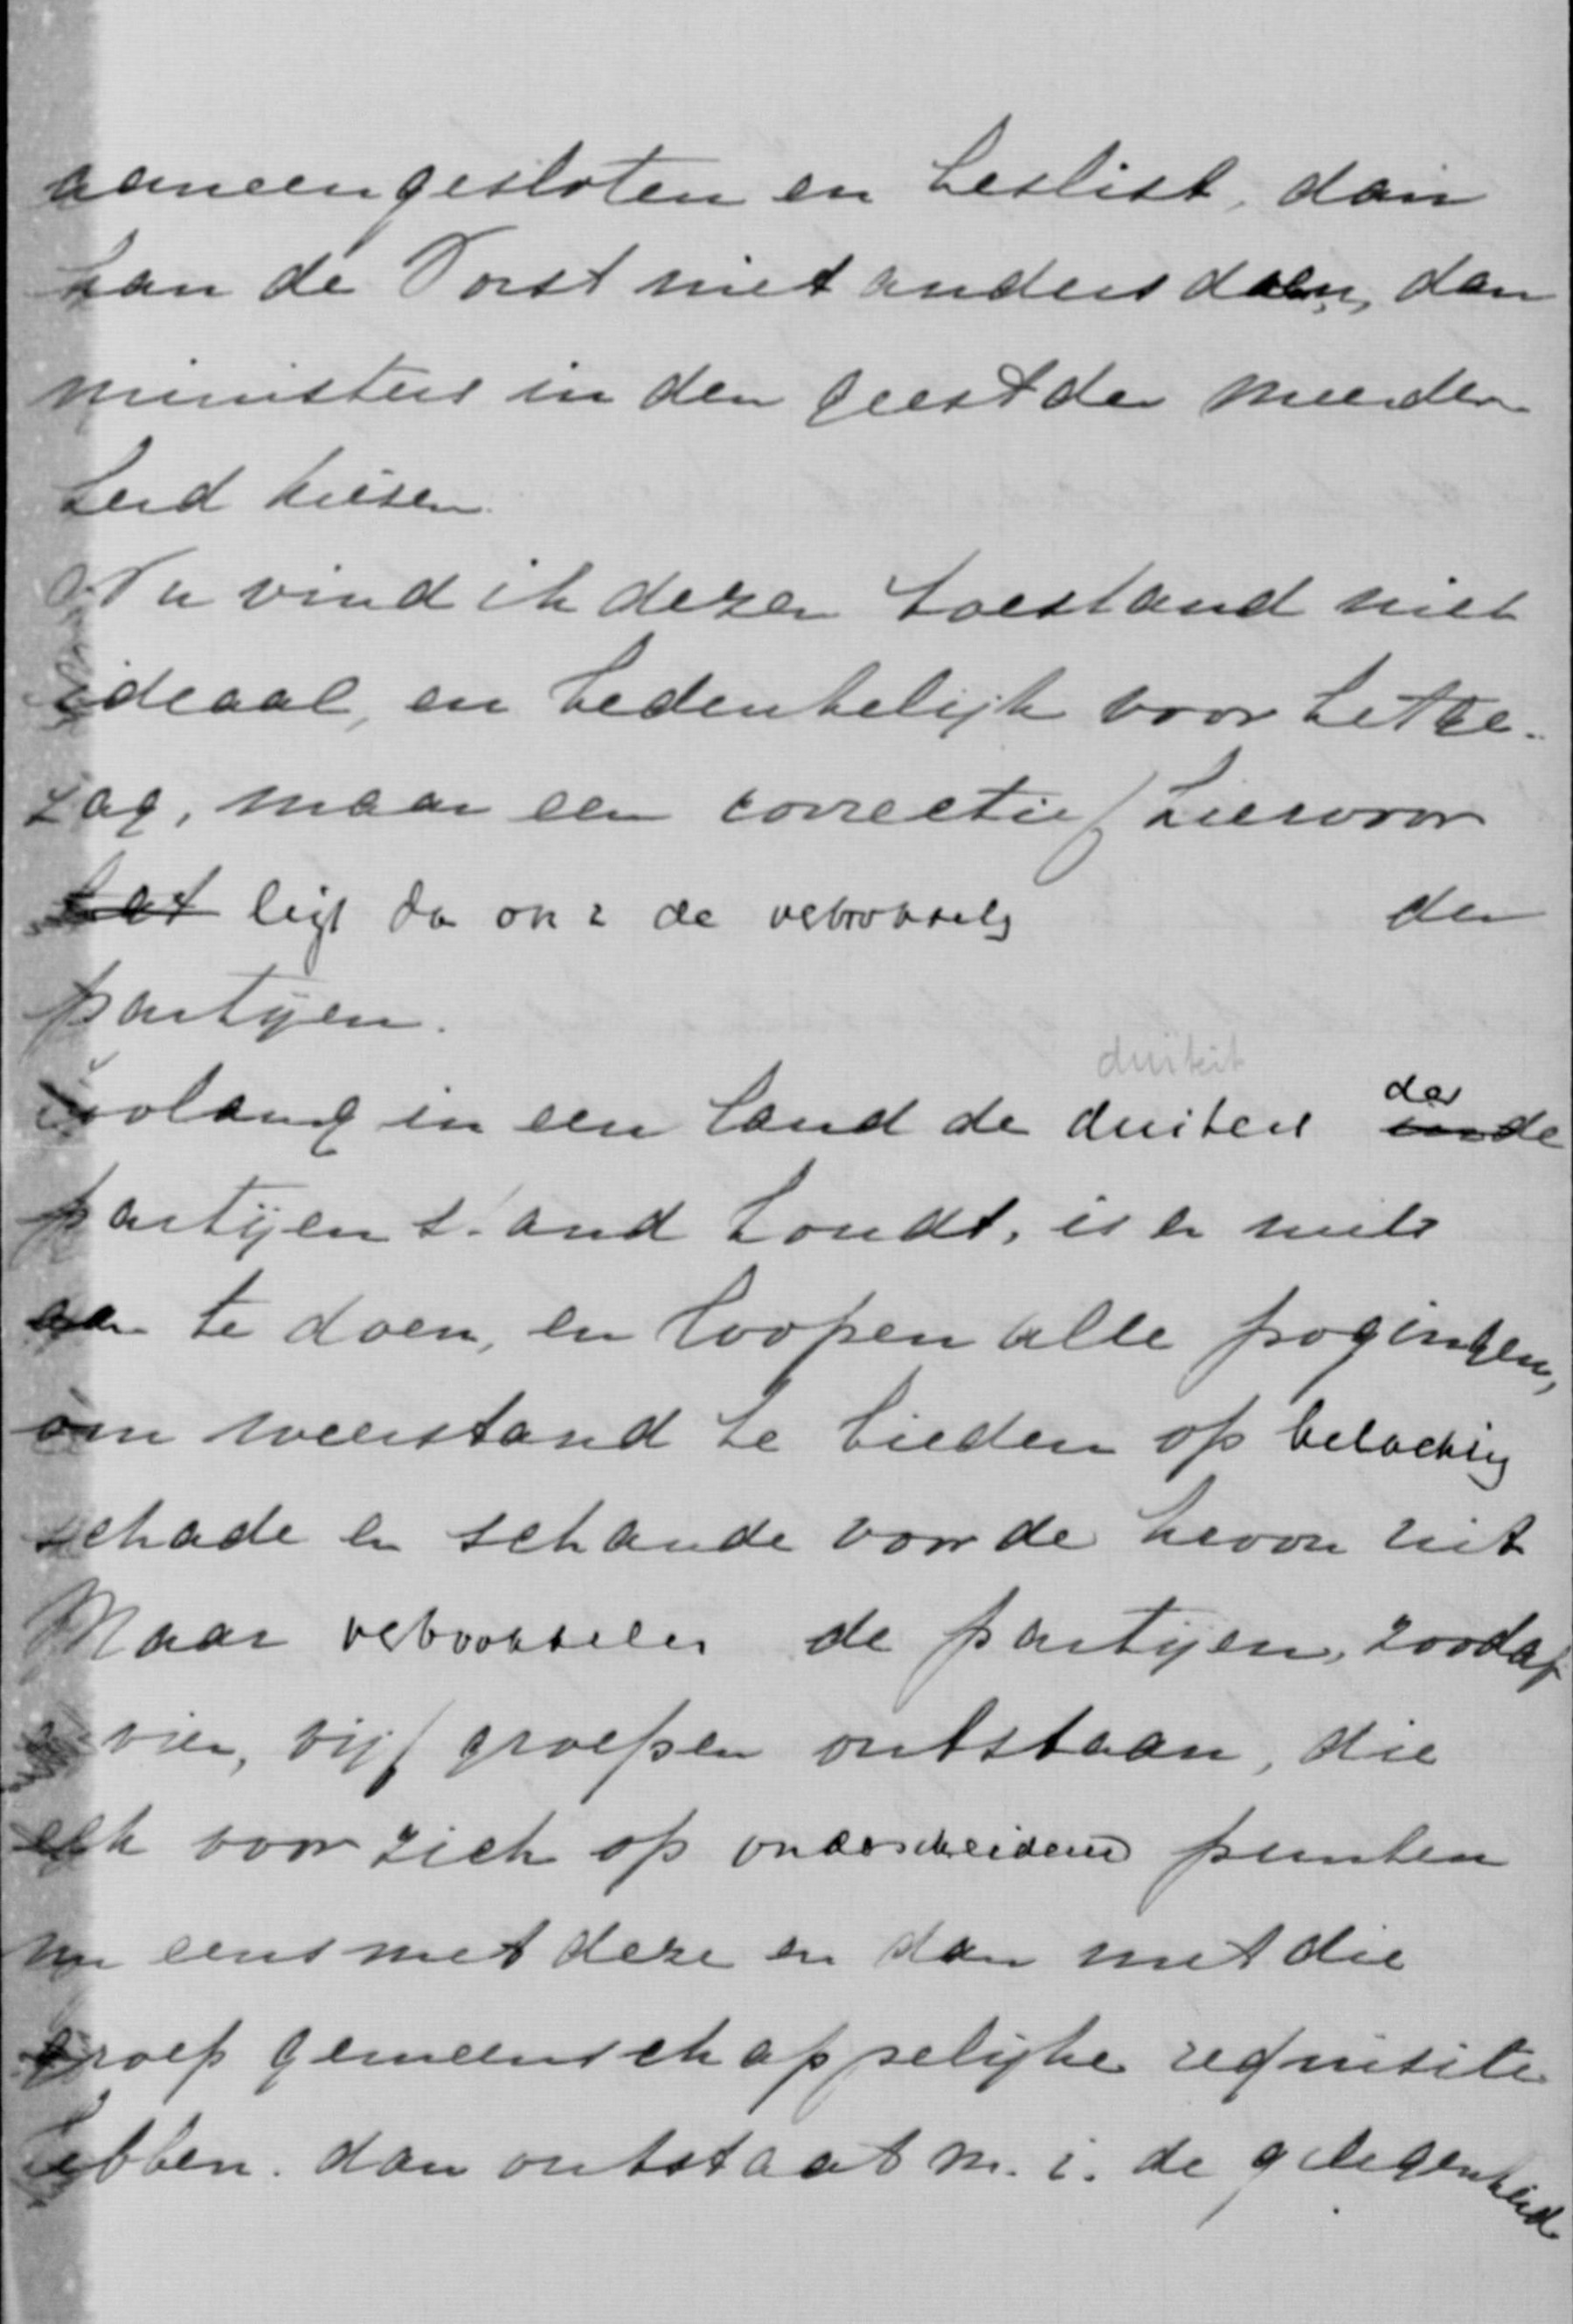 aaneengesloten en beslist, dan
kan de Vorst niet anders doen, dan
ministers in den geest der meerder
heid kiesen.
Nu vind ik dezen toestand niet
ideaal, en bedenkelijk voor het ge-
zag, maar een correctief hiervoor
hat ligt da on de verbrokkelg der
partijen.
duiteit
zoolang in een land de duiteit der
in de
partijen stand houdt, is er niets
aan te doen, en loopen alle pogingen,
om weerstand te bieden op belachlig
schade en schande voor de kroon uit
Maar verbrokkelen de partijen, zoodat
vier, vijf groepen ontstaan, die
elk voor zich op onderscheidene punten
nu eens met deze en dan met die
groep gemeenschappelijke requisite
hebben. dan ontstaat m. i. de gelegenheid